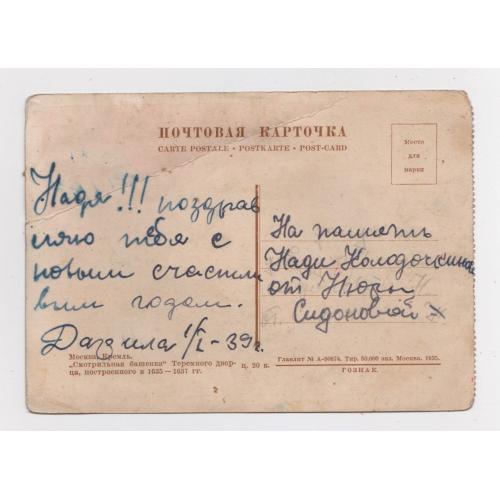 ПОЧТОВАЯ КАРТОЧКА
CARTE POSTALE • POSTKARTE • POST-CARD
Место
для
марки
Надя!!! поздрав
ляю тебя с
новым счастли
вым годом.
Дарила 1/I-39г.
На память
Нади Колодочкиной
от Нюры
Сидоновой
Москва. Кремль.
„Смотрильная башенка" Теремного двор-
ца, построенного в 1635—1637 гг.
ц. 20 к.
Главлит № А-90874. Тир. 50.000 экз. Москва. 1935.
ГОЗНАК.